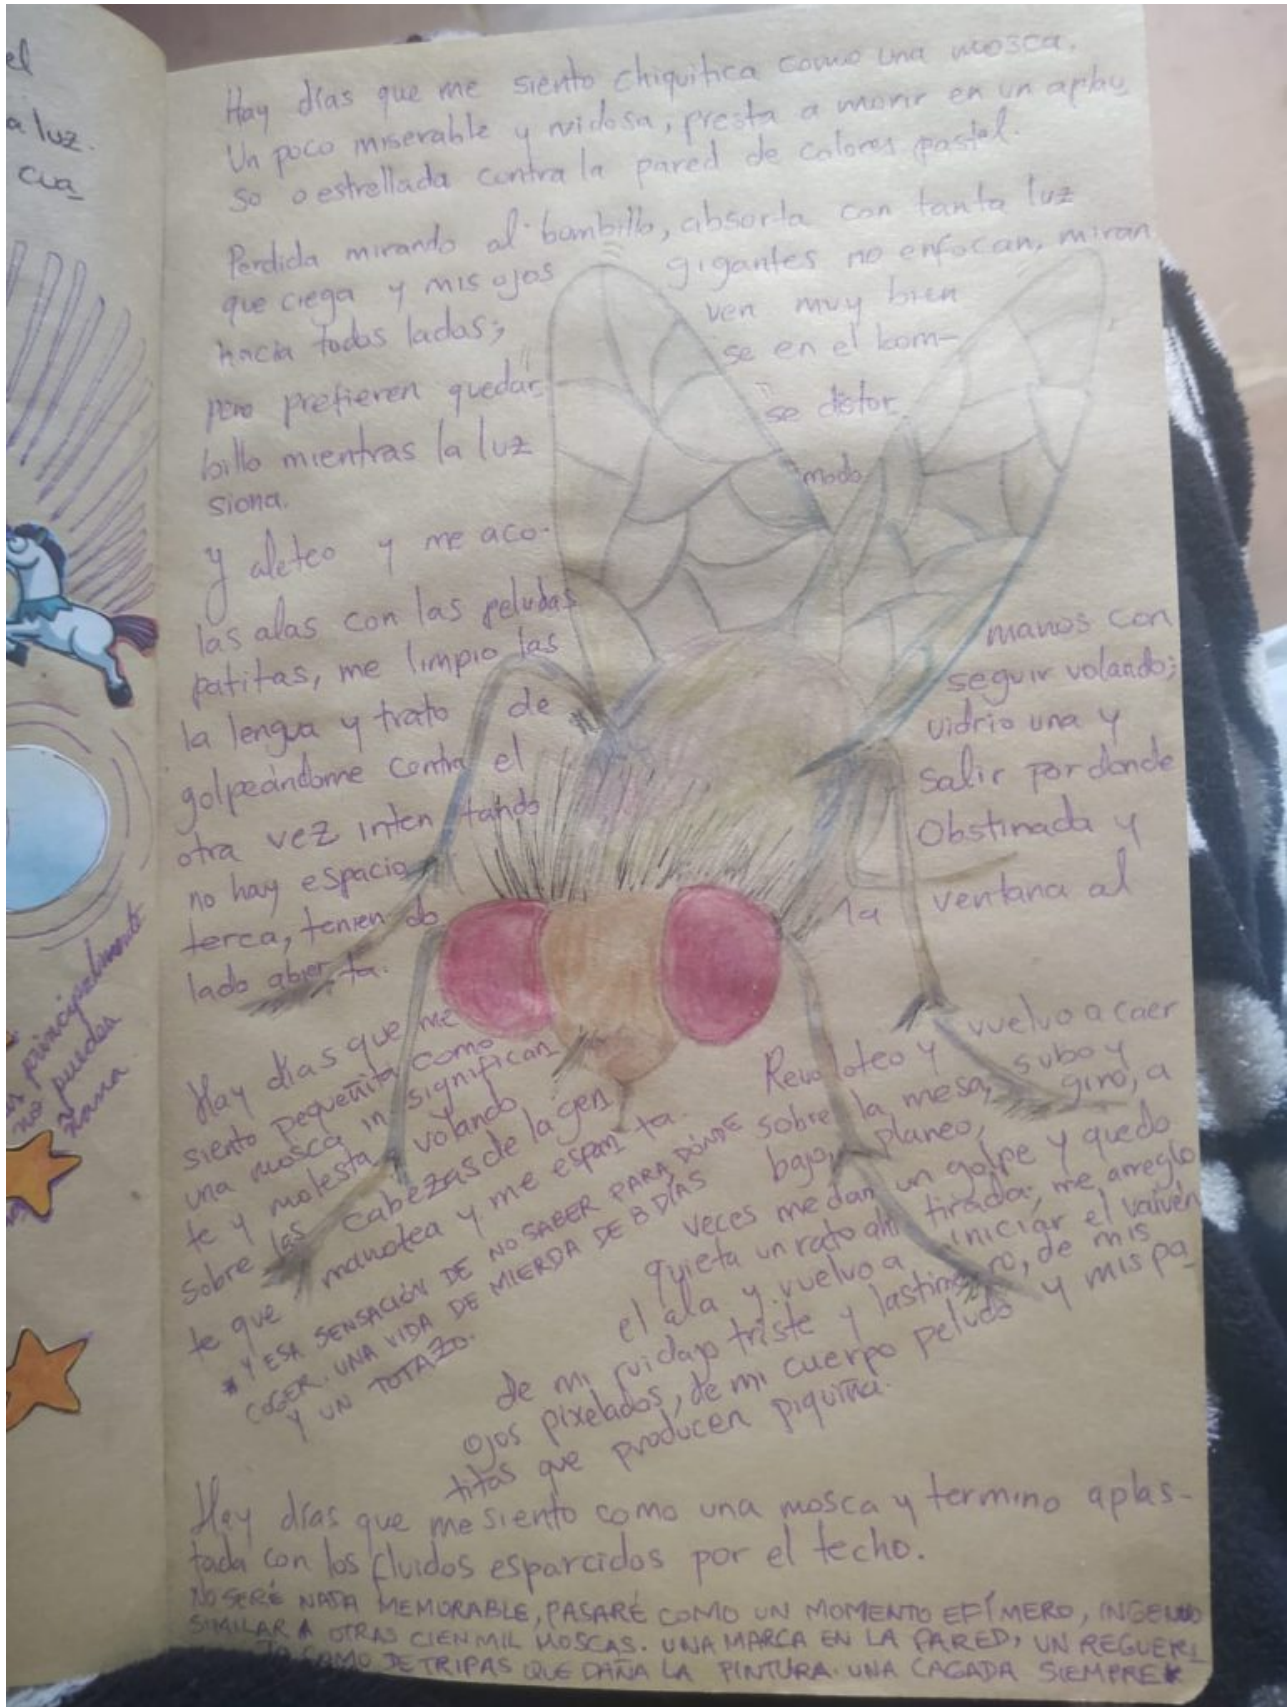 el
a luz.
cua
Hay días que me siento chiquitica como una mosca.
Un poco miserable y ruidosa, presta a morir en un aplau
so o estrellada contra la pared de colores pastel.
Perdida mirando al bombillo, absorta con tanta luz
que ciega y mis ojos gigantes no enfocan, miran
hacia todos lados; ven muy bien
pero prefieren quedar se en el bom-
billo mientras la luz se distor
siona.
y aleteo y me aco- modo
las alas con las peludas
patitas, me limpio las manos con
la lengua y trato de seguir volando;
golpeándome contra el vidrio una y
otra vez intentando salir por donde
no hay espacio. Obstinada y
terca, teniendo la ventana al
lado abierta.
Hay días que me
siento pequeñita como
una mosca insignifican
te y molesta volando
sobre las cabezas de la gen
te que manotea y me espanta.
* Y ESA SENSACIÓN DE NO SABER PARA DÓNDE
COGER. UNA VIDA DE MIERDA DE 8 DÍAS
Y UN TOTAZO.
Revoloteo y vuelvo a caer
sobre la mesa, subo y
bajo, planeo, giro, a
veces me dan un golpe y quedo
quieta un rato ahí tirada, me arreglo
el ala y vuelvo a iniciar el vaivén
de mi ruidajo triste y lastimero, de mis
ojos pixelados, de mi cuerpo peludo y mis pa
titas que producen piquiña.
Hay días que me siento como una mosca y termino aplas-
tada con los fluidos esparcidos por el techo.
NO SERÉ NADA MEMORABLE, PASARÉ COMO UN MOMENTO EFÍMERO,
SIMILAR A OTRAS CIEN MIL MOSCAS. UNA MARCA EN LA PARED, UN REGUERI
COMO DE TRIPAS QUE DAÑA LA PINTURA. UNA CAGADA SIEMPRE*
principalmente
no puedes